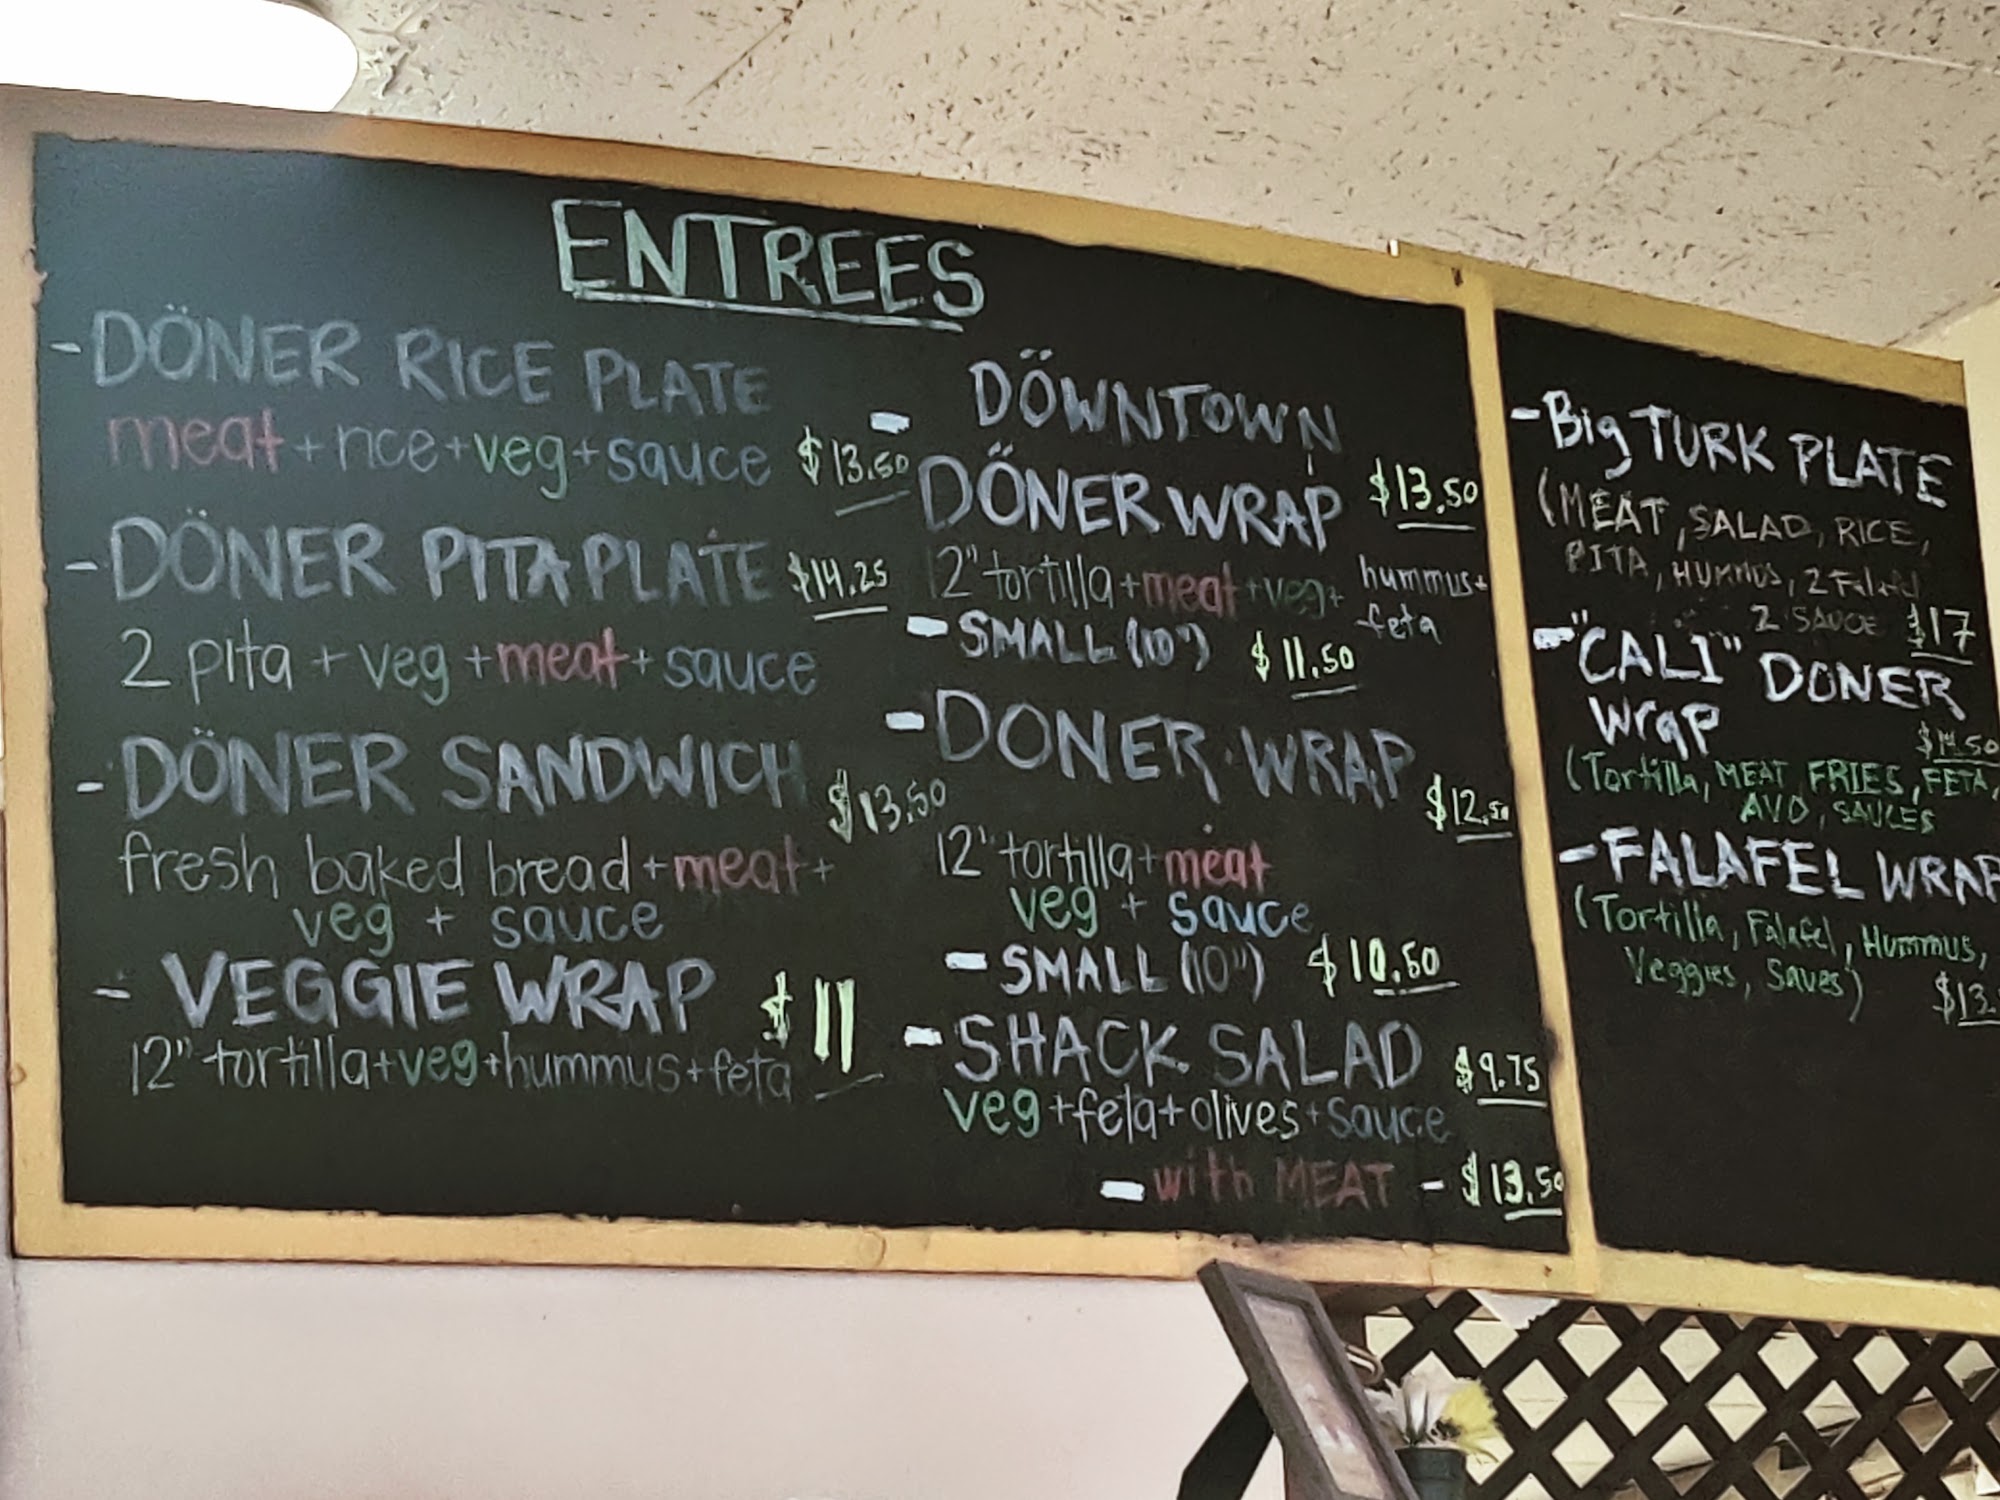 ENTREES
- DÖNER RICE PLATE
meat + rice + veg + sauce $13.50
- DÖNER PITA PLATE $14.25
2 pita + veg + meat + sauce
- DÖNER SANDWICH $13.50
fresh baked bread + meat +
veg + sauce
- VEGGIE WRAP $11
12" tortilla + veg + hummus + feta
- DÖWNTOWN
DÖNER WRAP $13.50
12" tortilla + meat + veg + hummus +
feta
- SMALL (10") $11.50
- DONER WRAP $12.50
12" tortilla + meat
veg + sauce
- SMALL (10") $10.50
- SHACK SALAD $9.75
veg + feta + olives + sauce
- with MEAT - $13.50
- Big TURK PLATE
(MEAT, SALAD, RICE,
PITA, HUMMUS, 2 Falafel
2 SAUCE $17
- "CALI" DONER
Wrap
(Tortilla, MEAT, FRIES, FETA,
AVO, SAUCES
- FALAFEL WRAP
(Tortilla, Falafel, Hummus,
Veggies, Saues)